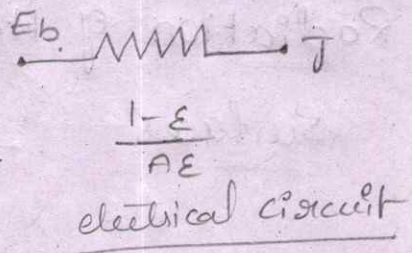 Eb. J
1-ε
Aε
electrical circuit